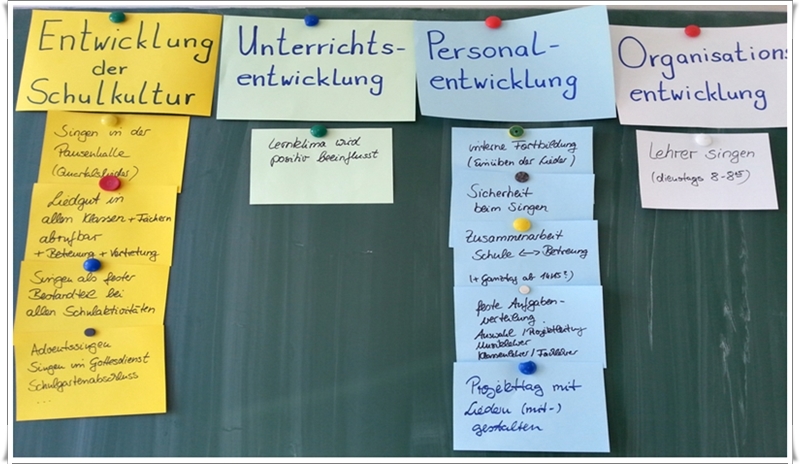 Entwicklung
der
Schulkultur
Singen in der
Pausenhalle
(Quartalslieder)
Liedgut in
allen Klassen + Fächern
abrufbar
+ Betreuung + Vertretung
Singen als fester
Bestandteil bei
allen Schulaktivitäten
Adventssingen
Singen im Gottesdienst
Schulgartenabschluss
...
Unterrichts-
entwicklung
Lernklima wird
positiv beeinflusst
Personal-
entwicklung
interne Fortbildung
(Einüben der Lieder)
Sicherheit
beim Singen
Zusammenarbeit
Schule <--> Betreuung
(+ Ganztag ab 14/15?)
feste Aufgaben-
verteilung
Auswahl / Projektleitung
Musiklehrer
Klassenlehrer / Fachlehrer
Projekttag mit
Liedern (mit-)
gestalten
Organisations
entwicklung
Lehrer singen
(dienstags 8-8¹⁵)